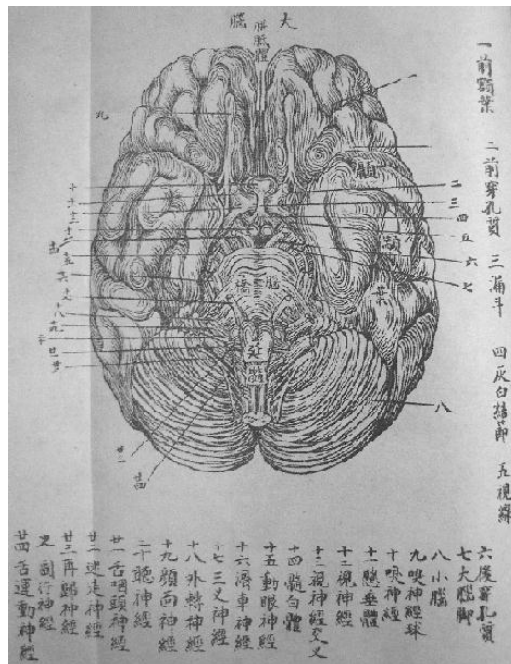 大腦
胼胝體
一前額葉　二前穿孔質　三漏斗　四灰白結節　五視線
顳顬葉
腦橋
延髓
一
二
三
四
五
六
七
八
九
十
六後穿孔質
七大腦脚
八小腦
九嗅神經球
十嗅神經
十一腦垂體
十二視神經
十三視神經交叉
十四髓白體
十五動眼神經
十六滑車神經
十七三叉神經
十八外轉神經
十九顏面神經
二十聽神經
廿一舌咽頭神經
廿二迷走神經
廿三再歸神經
又副行神經
廿四舌運動神經